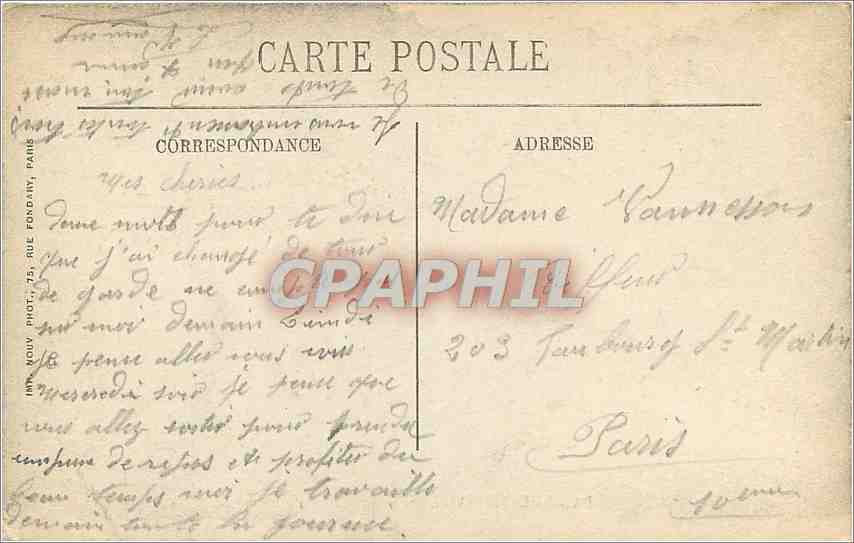 CARTE POSTALE
CORRESPONDANCE
ADRESSE
IMP. NOUV. PHOT., 75, RUE FONDARY, PARIS
Mes chéries
deux mots pour te dire
que j'ai changé de tour
de garde ne compte pas
sur moi demain Lundi
je pense aller vous voir
Mercredi soir je pense que
vous allez sortir pour prendre
un peu de repos et profiter du
beau temps moi je travaille
demain toute la journée.
Je vous embrasse toutes trois
De tout mon
Madame Vannesson
Coiffeur
203 Faubourg St Martin
Paris
10eme
CPAPHIL